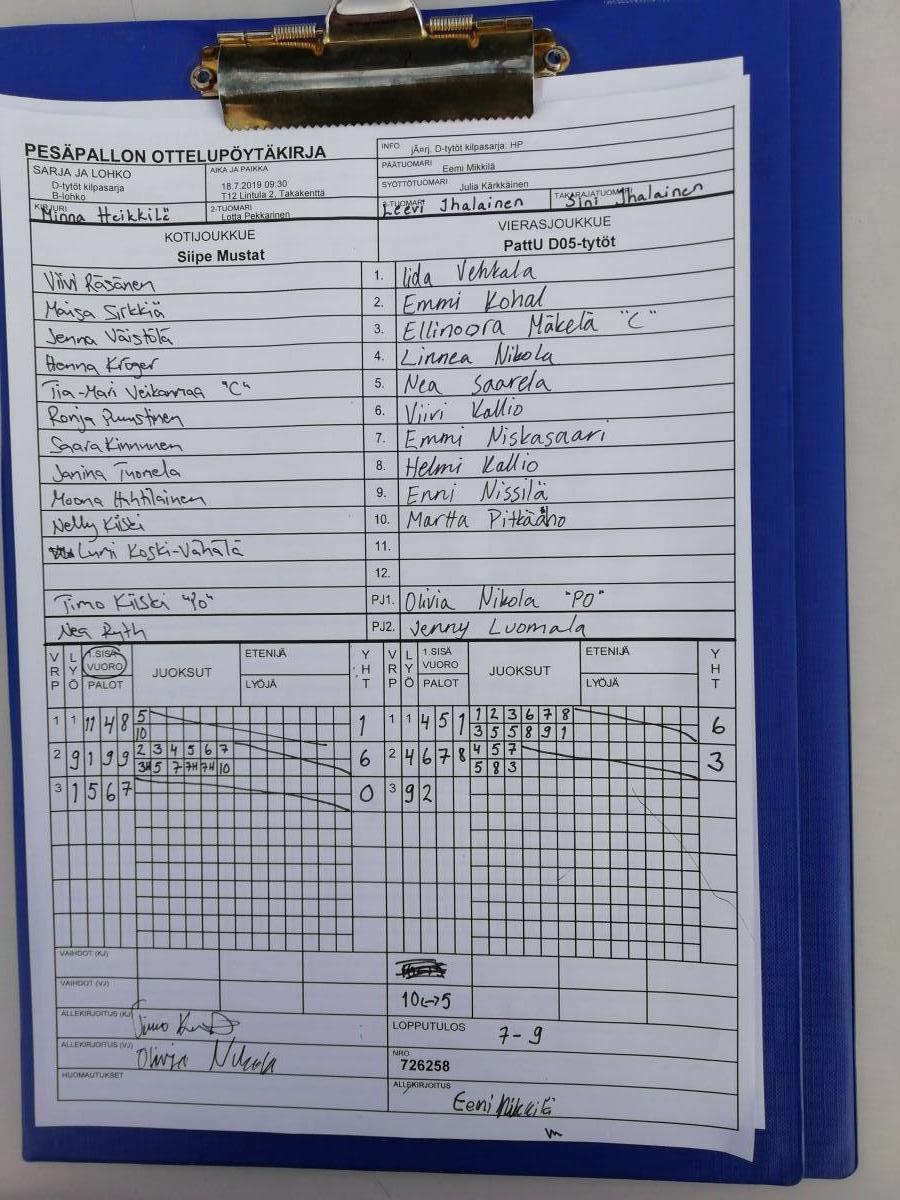 PESÄPALLON OTTELUPÖYTÄKIRJA
INFO jÄ¤rj. D-tytöt kilpasarja: HP
SARJA JA LOHKO
D-tytöt kilpasarja
B-lohko
AIKA JA PAIKKA
18.7.2019 09:30
T12 Lintula 2, Takakenttä
PÄÄTUOMARI Eemi Mikkilä
SYÖTTÖTUOMARI Julia Kärkkäinen
KIRJURI Minna Heikkilä
2-TUOMARI
Lotta Pekkarinen
3-TUOMARI Leevi Ihalainen
TAKARAJATUOMARI Sini Ihalainen
KOTIJOUKKUE
Siipe Mustat
VIERASJOUKKUE
PattU D05-tytöt
Viivi Räsänen 1. Iida Vehkala
Maisa Sirkkiä 2. Emmi Kohal
Jenna Väistölä 3. Ellinoora Mäkelä "C"
Henna Kröger 4. Linnea Nikola
Tia-Mari Veikanmaa "C" 5. Nea Saarela
Ronja Puustinen 6. Viivi Kallio
Saara Kinnunen 7. Emmi Niskasaari
Janina Tuomela 8. Helmi Kallio
Moona Huhtilainen 9. Enni Nissilä
Nelly Kiiski 10. Martta Pitkäaho
Lumi Koski-Vähälä 11.
12.
Timo Kiiski "Po" PJ1. Olivia Nikola "PO"
Nea Ryth PJ2. Jenny Luomala
VRP LYÖ 1.SISÄ VUORO PALOT JUOKSUT ETENIJÄ LYÖJÄ YHT VRP LYÖ 1.SISÄ VUORO PALOT JUOKSUT ETENIJÄ LYÖJÄ YHT
1 1 11 4 8 5 1 1 1 4 5 1 1 2 3 6 7 8 6
10 3 5 5 8 9 1
2 9 1 9 9 2 3 4 5 6 7 6 2 4 6 7 8 4 5 7 3
3H 5 7 7H 7H 10 5 8 3
3 1 5 6 7 0 3 9 2
VAIHDOT (KJ)
VAIHDOT (VJ) 10↔5
ALLEKIRJOITUS (KJ) Timo
LOPPUTULOS 7-9
ALLEKIRJOITUS (VJ) Olivia Nikola
NRO
726258
HUOMAUTUKSET
ALLEKIRJOITUS
Eemi Mikkilä